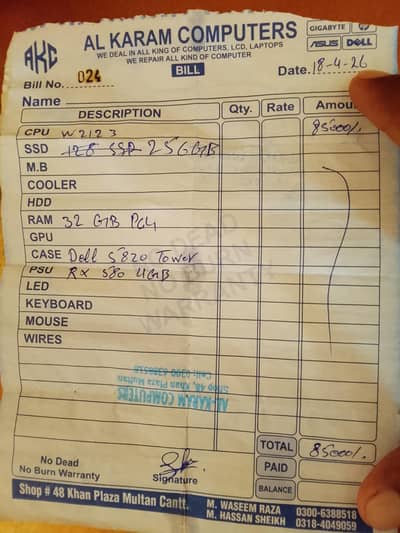 AKC
AL KARAM COMPUTERS
WE DEAL IN ALL KING OF COMPUTERS, LCD, LAPTOPS
WE REPAIR ALL KIND OF COMPUTER
GIGABYTE hp
ASUS DELL
BILL
Bill No. 024
Date. 18-4-26
Name
DESCRIPTION Qty. Rate Amou
CPU W2123 85000/.
SSD 128 SSD 256GB
M.B
COOLER
HDD
RAM 32 GB PC4
GPU
CASE Dell 5820 Tower
PSU RX 580 4GB
LED
KEYBOARD
MOUSE
WIRES
DEAD
NO BURN
WARRANTY
AL-KARAM COMPUTERS
Shop 48, Khan Plaza Multan
Cell: 0300 6388518
TOTAL 85000/.
PAID
BALANCE
No Dead
No Burn Warranty
Signature
Shop # 48 Khan Plaza Multan Cantt.
M. WASEEM RAZA 0300-6388518
M. HASSAN SHEIKH 0318-4049059